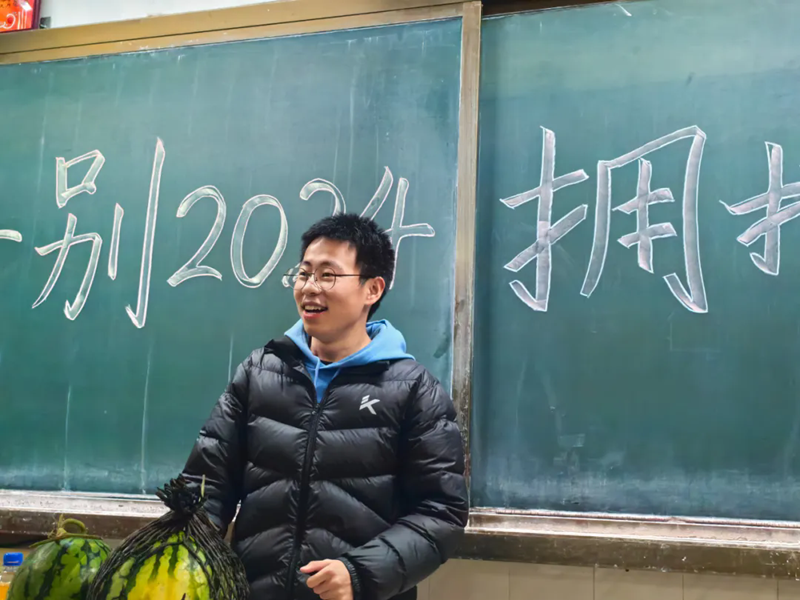 别2024 拥